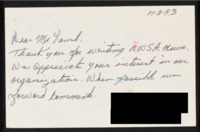 11-2-93
Dear Mr Lamb.
Thank you for writing AWSA News.
We appreciate your interest in our
organization. When possible we
forward